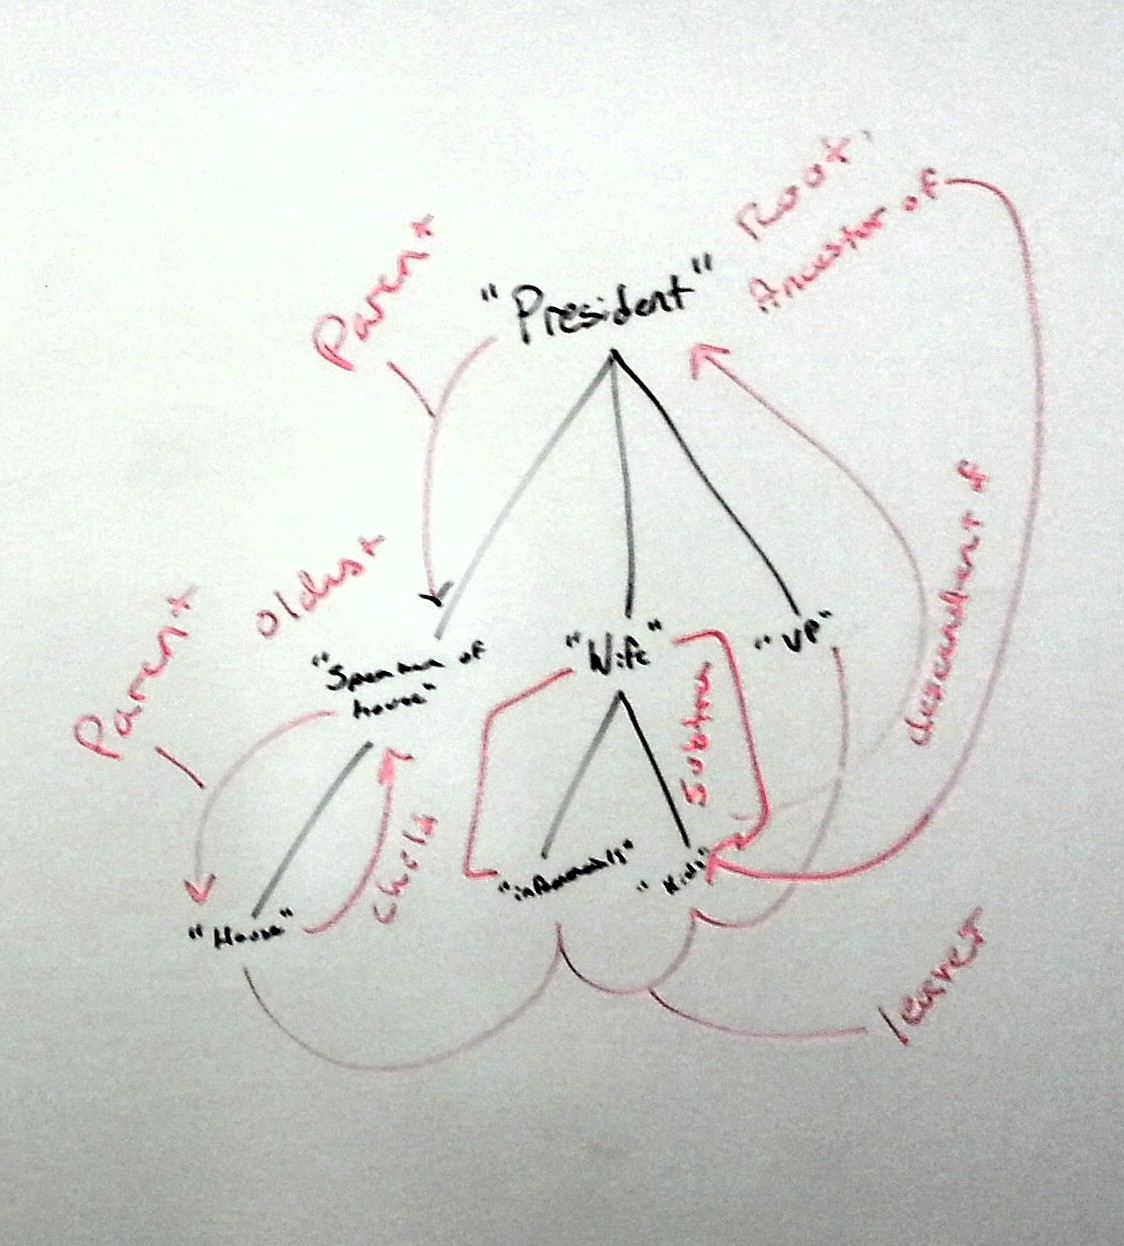 Root,
Ancestor of
Parent
"President"
descendent of
oldest
Parent
"Speaker of
house"
"Wife"
"VP"
Subtree
child
"Kids"
"House"
leaves